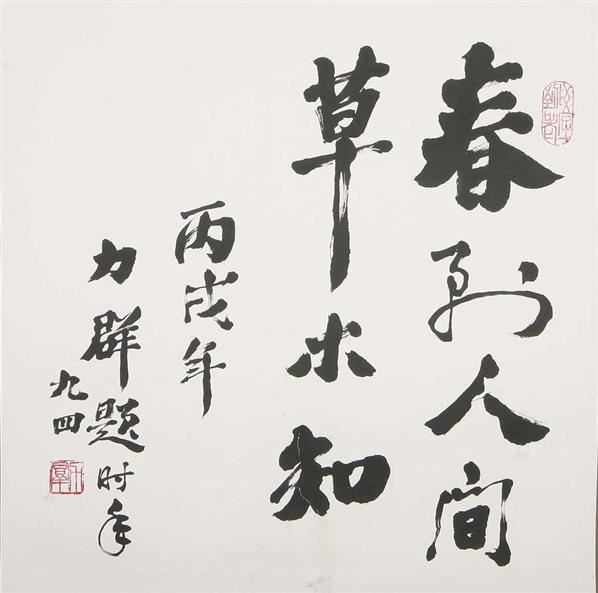 春到人间
草木知
丙戌年
力群题时年
九四